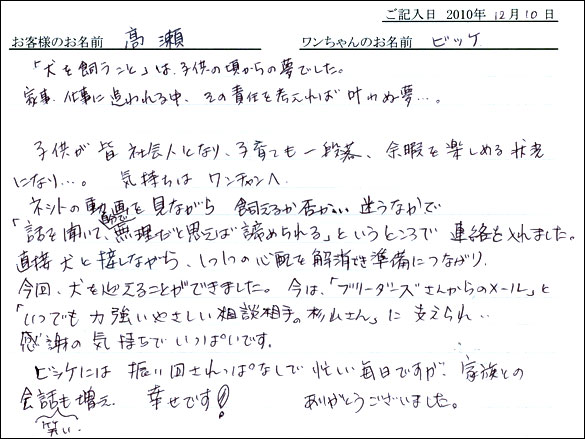 ご記入日 2010年 12月 10日
お客様のお名前 高瀬 ワンちゃんのお名前 ビッケ
「犬を飼うこと」は、子供の頃からの夢でした。
家事、仕事に追われる中、その責任を考えれば叶わぬ夢…。
子供が皆社会人となり、子育ても一段落、余暇を楽しめる状態
になり…。 気持ちはワンチャンへ
ネットの動画を見ながら 飼えるか否か… 迷うなかで
「話を聞いて、自分で無理だと思えば諦められる」というところで 連絡を入れました。
直接犬と接しながら、1つ1つの心配を解消させ準備につながり、
今回、犬を迎えることができました。今は、「ブリーダーズさんからのメール」と
「いつでも力強いやさしい相談相手。杉山さん」に支えられ…
感謝の気持ちでいっぱいです。
ビッケには振り回されっぱなしで忙しい毎日ですが、家族との
会話も増え 幸せです! ありがとうございました。
笑い